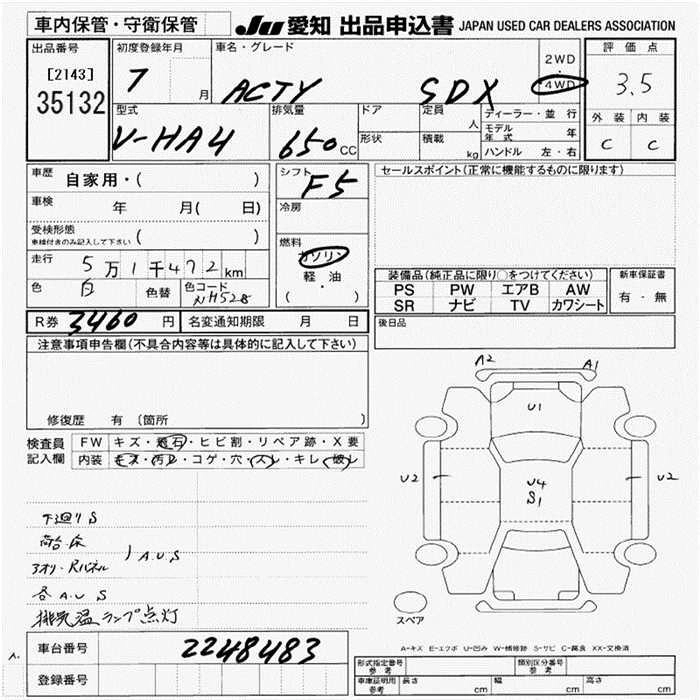 車内保管・守衛保管
JU 愛知 出品申込書 JAPAN USED CAR DEALERS ASSOCIATION
出品番号 初度登録年月 車名・グレード 評価点
[2143] 35132
7 月 ACTY SDX 2WD ・ 4WD 3.5
型式 排気量 ドア 定員 人 ディーラー・並行 外装 内装
V-HA4 650 CC 形状 積載 kg モデル年式 年 C C
ハンドル 左・右
車歴 自家用・( ) シフト F5 セールスポイント(正常に機能するものに限ります)
車検 年 月( 日) 冷房
受検形態 車検付きのみ記入して下さい ( )
燃料 ガソリン・軽油 ( )
走行 5万1千472km
色 白 色替 色コード NH528
装備品(純正品に限り○をつけてください) 新車保証書
PS PW エアB AW 有・無
SR ナビ TV カワシート
R券 3460 円 名変通知期限 月 日 後日品
注意事項申告欄(不具合内容等は具体的に記入して下さい)
修復歴 有 〔箇所 〕
検査員記入欄 FW キズ・飛石・ヒビ割・リペア跡・X要
内装 キズ・汚レ・コゲ・穴・スレ・キレ・破レ
下廻り S
荷台・床
3アオリ・Rパネル ) A.U.S
各 A.U S
排気温ランプ点灯
A2 A1
U1
U2 U4 U2
S1
スペア
A-キズ E-エクボ U-凹み W-補修跡 S-サビ C-腐食 XX-交換済
車台番号 2248483
登録番号
形式指定番号 参考 類別区分番号 参考
車庫証明用 参考 長さ cm 幅 cm 高さ cm